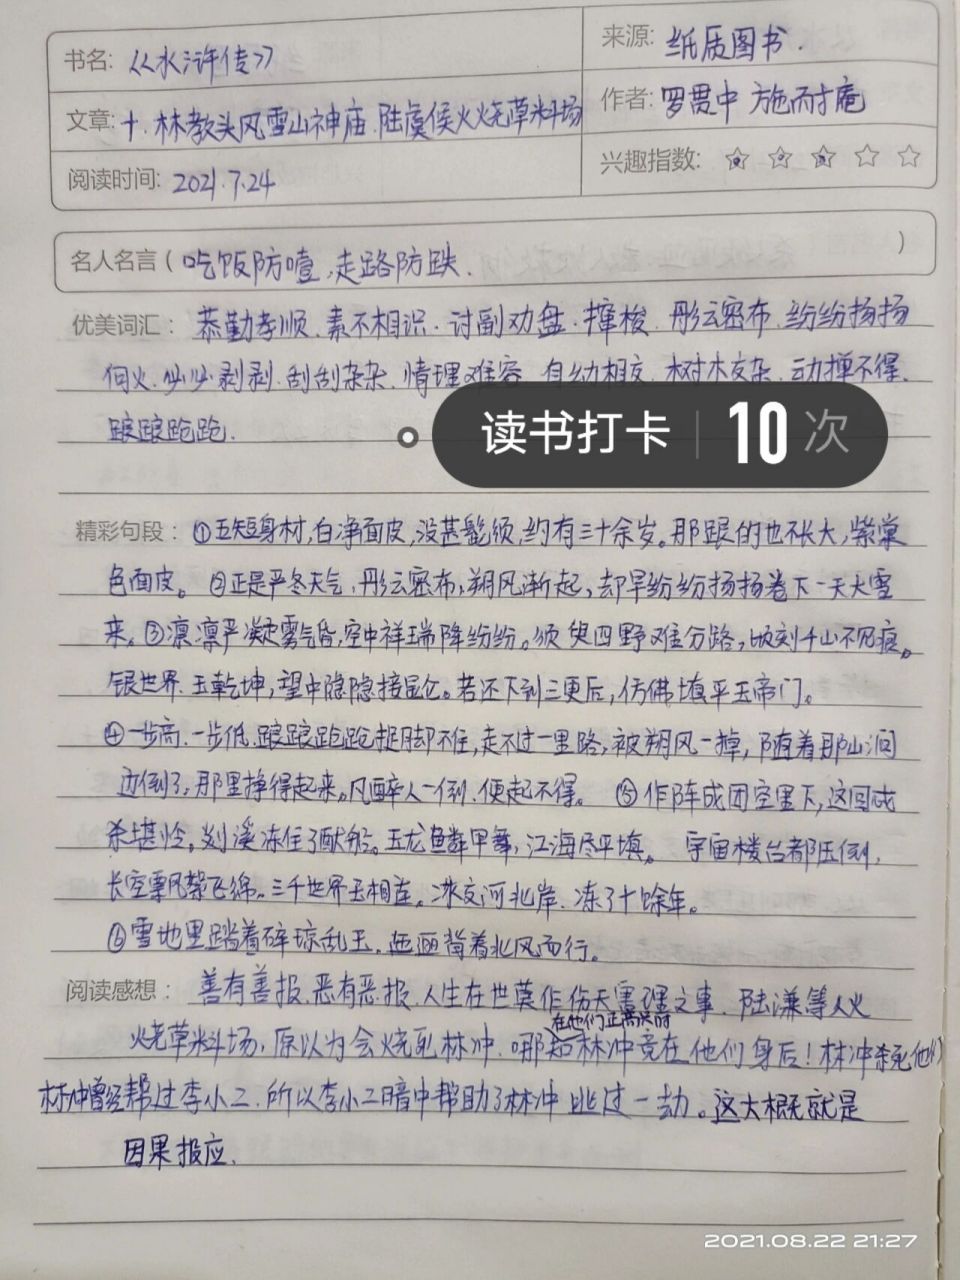 书名: 《水浒传》
来源: 纸质图书.
文章: 十.林教头风雪山神庙.陆虞侯火烧草料场
作者: 罗贯中 施耐庵
阅读时间: 2021.7.24
兴趣指数: ☆ ☆ ☆ ☆ ☆
名人名言 ( 吃饭防噎,走路防跌. )
优美词汇: 恭勤孝顺.素不相识.讨副劝盘.撺梭.彤云密布.纷纷扬扬
向火.必必剥剥.刮刮杂杂.情理难容.自幼相交.树木交杂.动掸不得.
踉踉跄跄.
读书打卡 | 10 次
精彩句段: ①五短身材,白净面皮,没甚髭须,约有三十余岁。那跟的也不长大,紫棠
色面皮。②正是严冬天气,彤云密布,朔风渐起,却早纷纷扬扬卷下一天大雪
来。③凛凛严凝雾气昏,空中祥瑞降纷纷。须臾四野难分路,顷刻千山不见痕。
银世界.玉乾坤,望中隐隐接昆仑。若还下到三更后,仿佛填平玉帝门。
④一步高.一步低.踉踉跄跄捉脚不住,走不过一里路,被朔风一掉,随着那山涧
边倒了,那里挣得起来。凡醉人一倒.便起不得。 ⑤作阵成团空里下,这回忒
杀堪怜。剡溪冻住子猷船。玉龙鳞甲舞,江海尽平填。 宇宙楼台都压倒,
长空飘风絮飞绵。三千世界玉相连。冰交河北岸.冻了十馀年。
⑥雪地里踏着碎琼乱玉.迤逦背着北风而行。
阅读感想: 善有善报.恶有恶报.人生在世莫作伤天害理之事.陆谦等人火
在他们正高兴时
烧草料场,原以为会烧死林冲.哪知林冲竟在他们身后!林冲杀死他们
林冲曾经帮过李小二.所以李小二暗中帮助了林冲逃过一劫。这大概就是
因果报应.
2021.08.22 21:27